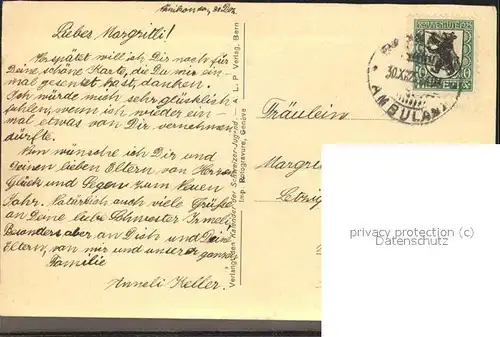 Lieber Margritli!
Verspätet will ich Dir noch für
Deine schöne Karte, die Du mir ein-
mal gesendet hast, danken.
Ich würde mich sehr glücklich
fühlen, wenn ich wieder ein-
mal etwas von Dir vernehmen
dürfte.
Nun wünsche ich Dir und
Deinen lieben Eltern von Herzen
Glück und Segen zum neuen
Jahr. Natürlich auch viele Grüße
an Deine liebe Schwester Irmeli.
Besonders aber an Dich und Deine
Eltern, von mir und unserer ganzen
Familie
Anneli Keller.
Verlag des Kalender der Schweizer-Jugend — L. P. Verlag, Bern
Imp. Rotogravure, Genève
Fräulein
Margri
AMBULANT
privacy protection
Datenschutz